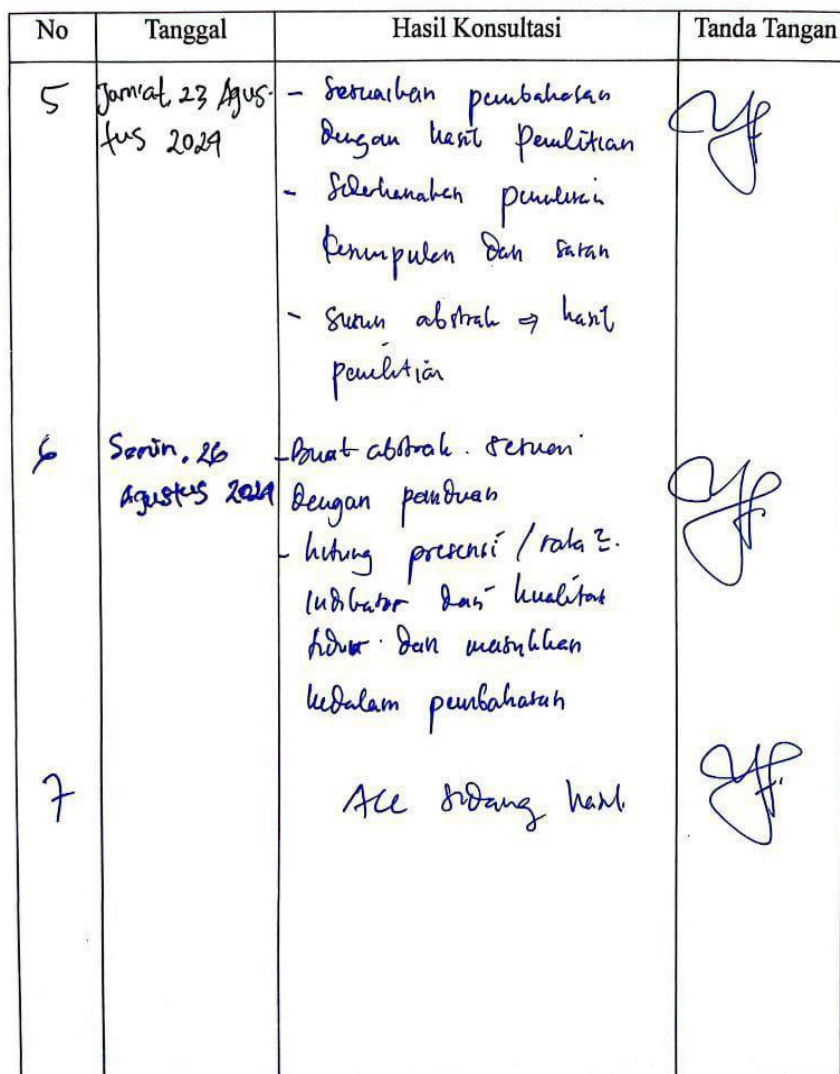 No Tanggal Hasil Konsultasi Tanda Tangan
5 Jum'at, 23 Agus- - Sesuaikan pembahasan
tus 2024 dengan hasil Penelitian
- Sederhanakan penulisan
kesimpulan dan saran
- Susun abstrak ⇒ hasil
penelitian
6 Senin, 26 - Buat abstrak. sesuai
Agustus 2024 dengan panduan
- hitung presensi / rata2.
Indikator dari kualitas
tidur. dan masukkan
kedalam pembahasan
7 Acc sidang hasil.